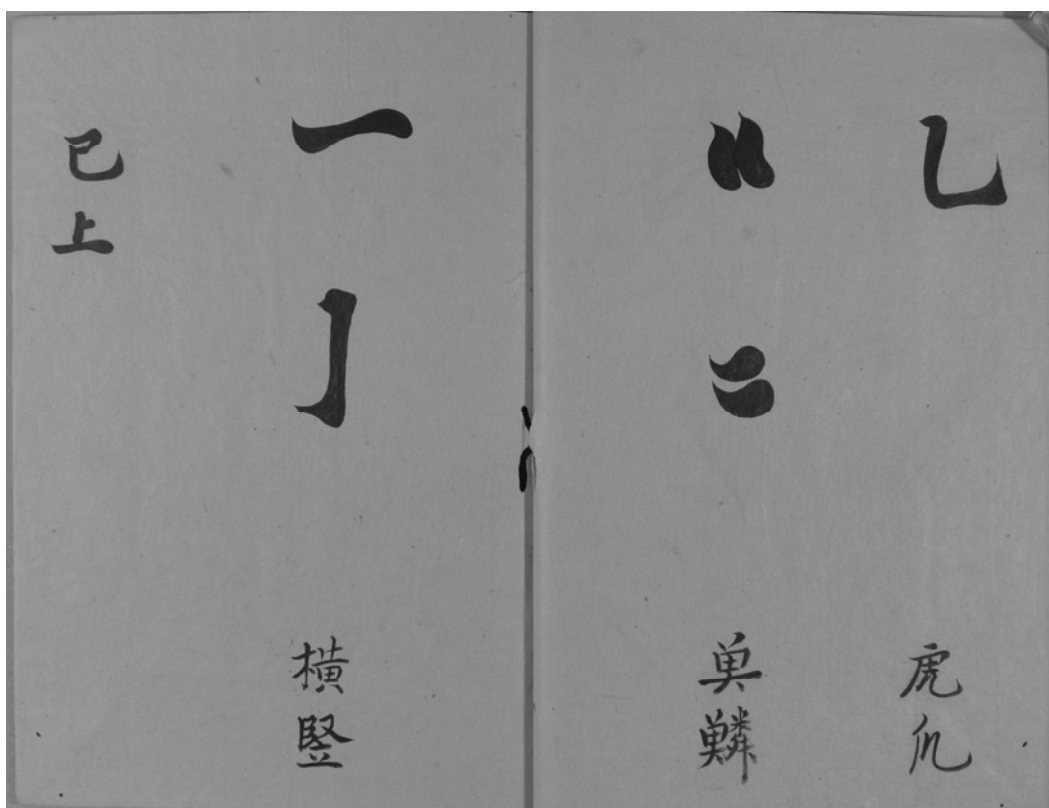 乚 虎爪
〃 二 𩵋鱗
一 亅 横竪
已上